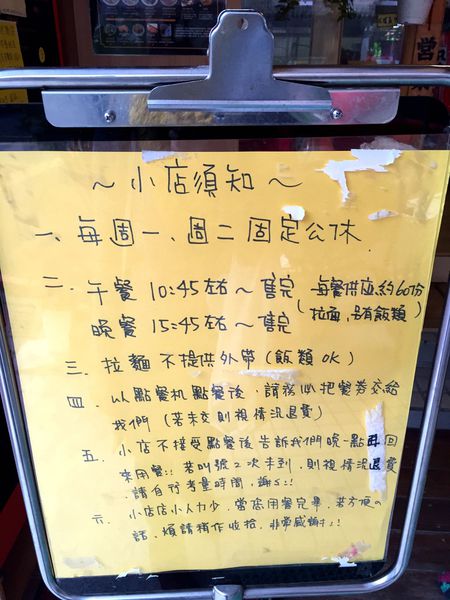 ～小店須知～
一、每週一、週二固定公休
二、午餐 10:45左右～售完
晚餐 15:45左右～售完
(每餐供應約60份
拉麵,另有飯類)
三、拉麵不提供外帶(飯類OK)
四、以點餐机點餐後,請務必把餐券交給
我們(若未交則視情況退費)
五、小店不接受點餐後告訴我們晚一點再回
來用餐!! 若叫號2次未到,則視情況退費
請自行考量時間,謝謝!!
六、小店店小人力少,當您用餐完畢,若方便の
話,煩請稍作收拾,非常感謝!!
營